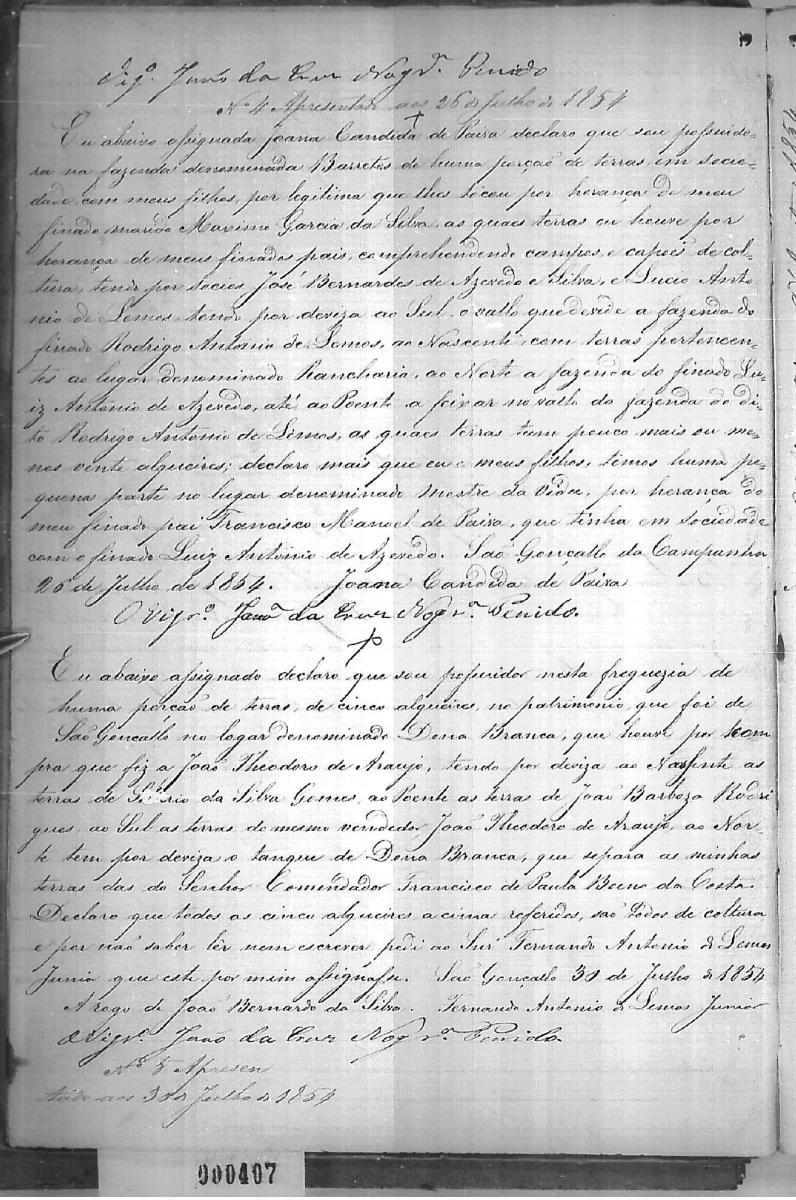 Vigº. João da Cruz Nogrª. Penido
Nº 4 Apresentado aos 26 de Julho de 1854
Eu abaixo assignada Joana Candida de Paiva declaro que sou possuido-
ra na fazenda denominada Barretos de huma porção de terras, em socie-
dade com meus filhos, por legitima que lhes tocou por herança de meu
finado marido Maximo Garcia da Silva, as quaes terras eu houve por
herança de meus finados pais, comprehendendo campos, e capois de col-
tura, tendo por socios José Bernardes de Azevedo e Silva, e Lucio Anto
nio de Lemos, tendo por deviza ao Sul, o vallo que devide a fazenda do
finado Rodrigo Antonio de Lemos, ao Nascente, com terras pertencen-
tes ao lugar denominado Rancharia, ao Norte a fazenda do finado Lu-
iz Antonio de Azevedo, até ao Poente a feixar no vallo da fazenda do di-
to Rodrigo Antonio de Lemos, as quaes terras tem pouco mais ou me-
nos vinte alqueires; declaro mais que eu e meus filhos, temos huma pe-
quena parte no lugar denominado Mestre da Vida, por herança do
meu finado pai Francisco Manoel de Paiva, que tinha em sociedade
com o finado Luiz Antonio de Azevedo. Sao Gonçallo da Campanha
26 de Julho de 1854. Joana Candida de Paiva
O Vigrº. João da Cruz Nogrª. Penido.
Eu abaixo assignado declaro que sou possuidor nesta freguezia de
huma porção de terras, de cinco alqueires, no patrimonio que foi de
Saõ Goncallo no logar denominado Dona Branca, que houve por kom
pra que fiz a João Theodoro de Araujo, tendo por deviza ao Nassente as
terras de da Silva Gomes, ao Poente as terras de João Barboza Rodri
gues, ao Sul as terras do mesmo vendedor João Theodoro de Araujo, ao Nor-
te tem por deviza o tanque de Dona Branca, que separa as minhas
terras das do Senhor Comendador Francisco de Paula Bueno da Costa.
Declaro que todos as cinco alqueires acima referidos, são todos de coltura
e por não saber lêr nem escrever pedi ao Snr Fernando Antonio de Lemos
Junior que este por mim assignasse. Sao Gonçallo 30 de Julho de 1854
Arogo de João Bernardo da Silva. Fernando Antonio de Lemos Junior
O Vigrº. João da Cruz Nogrª. Penido.
Nº 5 Apresen
tado aos 30 de Julho de 1854
000407